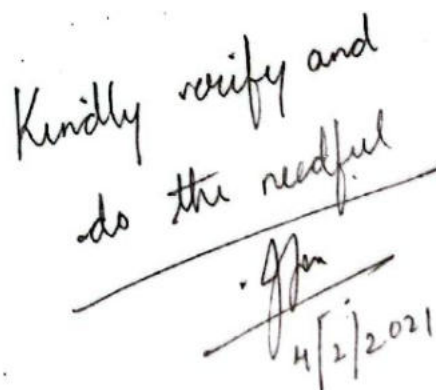 Kindly verify and
do the needful
4/2/2021